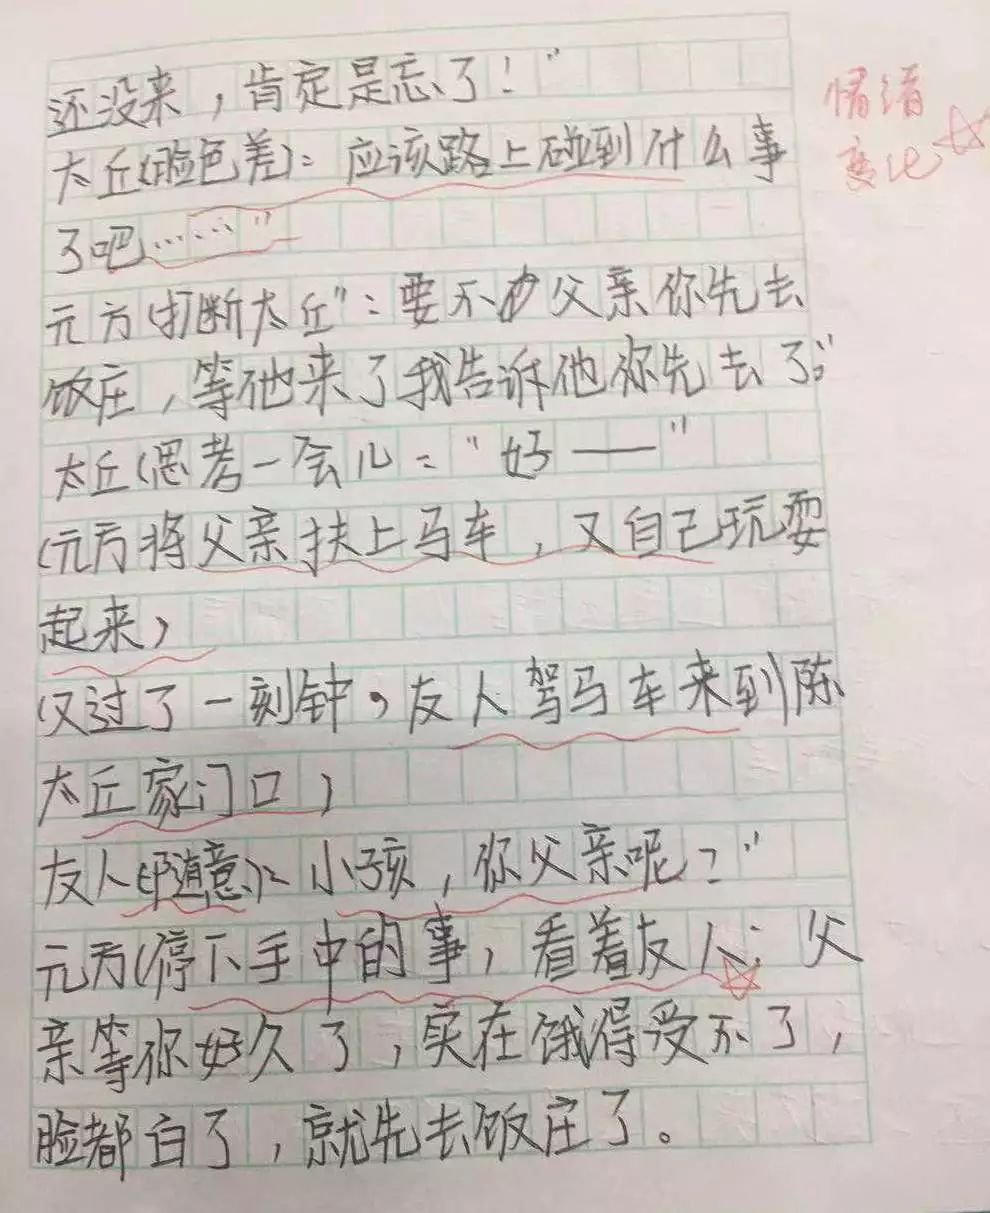 还没来，肯定是忘了！”
太丘(脸色差)：应该路上碰到什么事
了吧……”
元方(打断太丘”：要不父亲你先去
饭庄，等他来了我告诉他你先去了。”
太丘(思考一会儿：“好——”
(元方将父亲扶上马车，又自己玩耍
起来)
(又过了一刻钟，友人驾马车来到陈
太丘家门口)
友人(随意)：小孩，你父亲呢？”
元方(停下手中的事，看着友人：父
亲等你好久了，实在饿得受不了，
脸都白了，就先去饭庄了。
情绪
变化